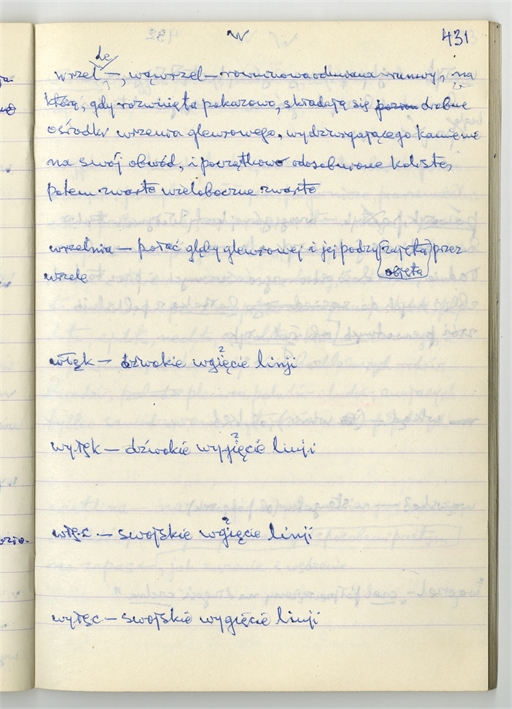 W 431
le
wrzel —, wąwrzel — równinowa odmiana wrzawy, na
którą, gdy rozwinięta pokazowo, składają się drobne
ośrodki wrzenia glewrowego, wydźwigającego kamienie
na swój obwód, i początkowo odosobnione koliste,
potem zwarte wieloboczne zwarte
wrzelnia — połać gleby glewrowej i jej podzy zajęta przez
objęta
wrzele
włęk — dźwokie wgięcie linji
wyłęk — dźwokie wygięcie linji
włęc — swojskie wgięcie linji
wyłęc — swojskie wygięcie linji